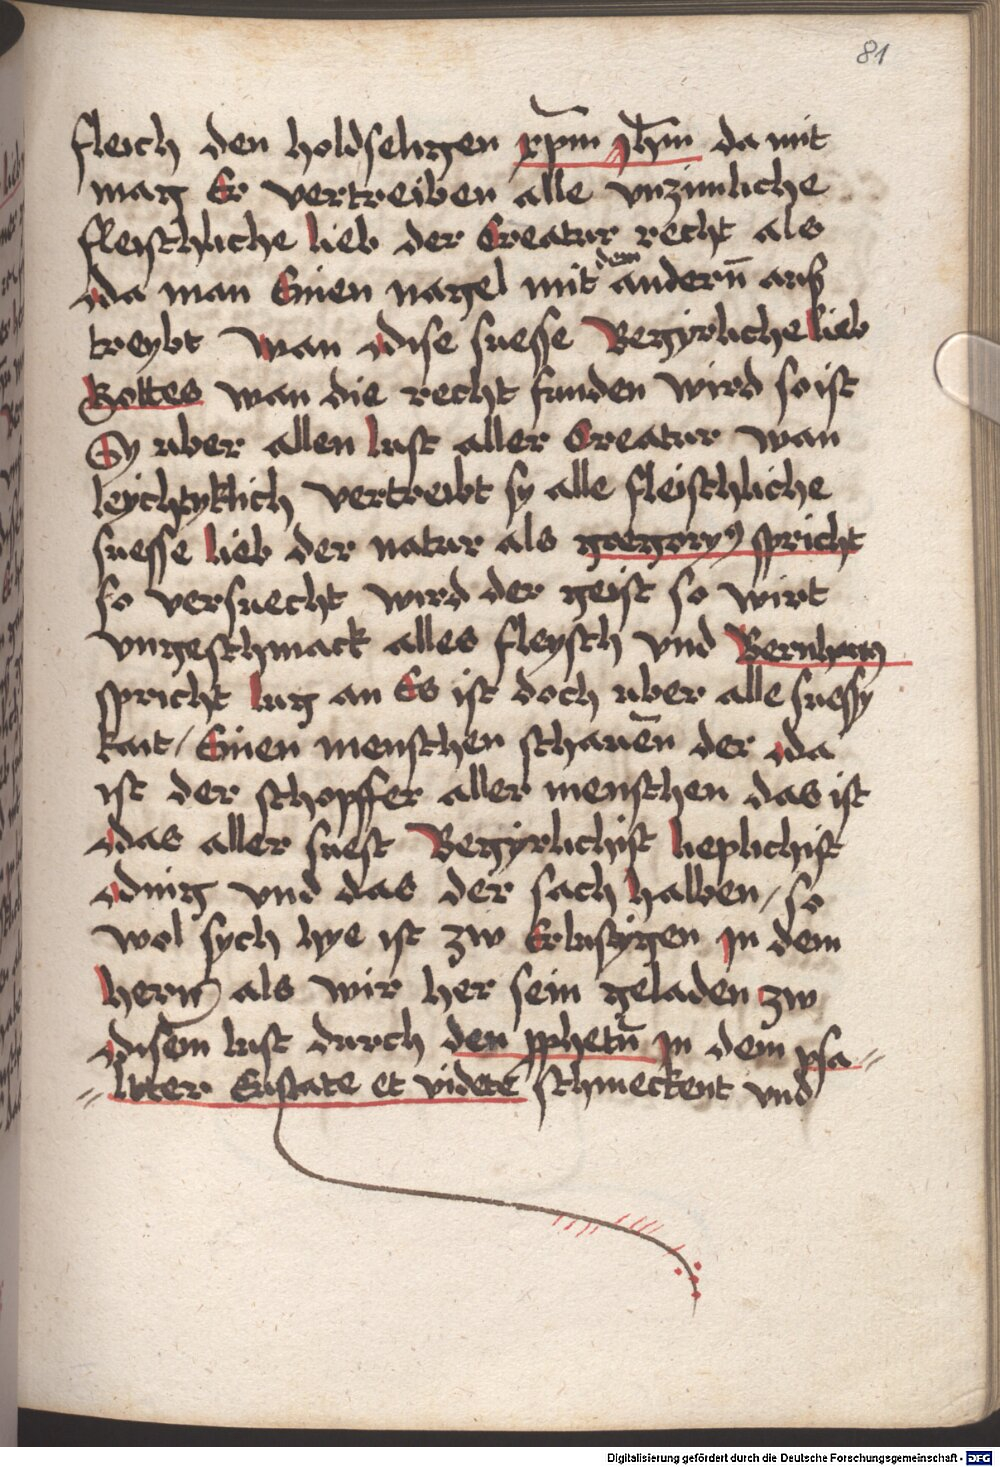 81
fleich den holdseligen xp̄m Jh̄m da mit
mag Er vertreiben alle vnzimliche
fleischliche lieb der Creatur recht als
da man Einen nagel mit dem andern̄ auß
treybt wan dise suesse Begyrliche lieb
Gottes wan die recht funden wird so ist
Sy uber allen lust aller Creatur wan
leychtyklich vertreibt sy alle fleischliche
suesse lieb der natur als gregoryꝰ spricht
so versuecht wird der geist so wirt
vngeschmack alles fleysch vnd Bernhartꝰ
spricht lug an Es ist doch uber alle suessy
kait / Einen menschen schauēn der da
ist der schopffer aller menschen das ist
das aller suest Begyrlichist lieplichist
ding vnd das der sach halben / so
wol sych hye ist zw Erlustygen Jn dem
hern als wir her sein geladen zw
disem lust durch den pphetn̄ Jn dem psa //
// lter Gustate et videte schmeckent vnd
Digitalisierung gefördert durch die Deutsche Forschungsgemeinschaft - DFG